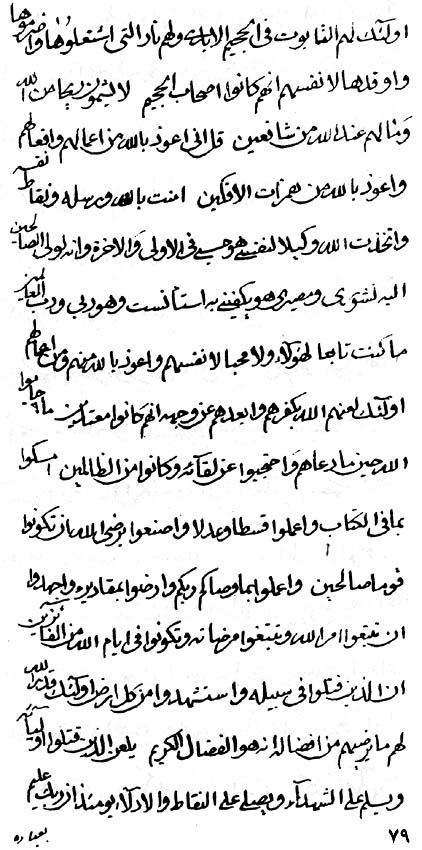 اولئك لهم التابوت فى الجحيم الابدى ولهم نار التى اشتعلوها واضرموها
واوقدها لانفسهم انهم كانوا اصحاب الجحيم لا ليشمون ريحا من الله
وما لهم عند الله من شافعين قل انى اعوذ بالله من اعمالهم وافعالهم
واعوذ بالله من همزات الافكين امنت بالله ورسله ونقاط نفسه
واتخذت الله وكيلا لنفسى هو حسبى فى الاولى والاخرة وانه لولى الصالحين
اليه لشوى ومصيرى هو يكفينى به استانست وهو ربى ورب العالمين
ما كنت تابعا لهؤلاء ولا محبا لانفسهم واعوذ بالله منهم ومن اعمالهم
اولئك لعنهم الله بكفرهم وابعدهم عن وجهه انهم كانوا معتدين ما جاموا
الله حين ما دعاهم واحتجبوا عن لقائه وكانوا من الظالمين امسكوا
بما فى الكتاب واعملوا قسطا وعدلا واصنعوا يرضى الله بان تكونوا
قوما صالحين واعملوا بما وصاكم ربكم وارضوا بمقاديره واجهدوا
ان تتبعوا امر الله وتبتغوا مرضاته وتكونوا فى ايام الله من الفائزين
ان الذين قتلوا فى سبيله واستشهدوا من كل ارض اولئك قدر الله
لهم ما يرضيهم من افضاله انه هو الفضال الكريم يلعن الذين قتلوا اوليائه
ويسلم على الشهدآء ويصلى على النقاط والادلاء يومئذ ان ربك عليم
٧٩ بعباده